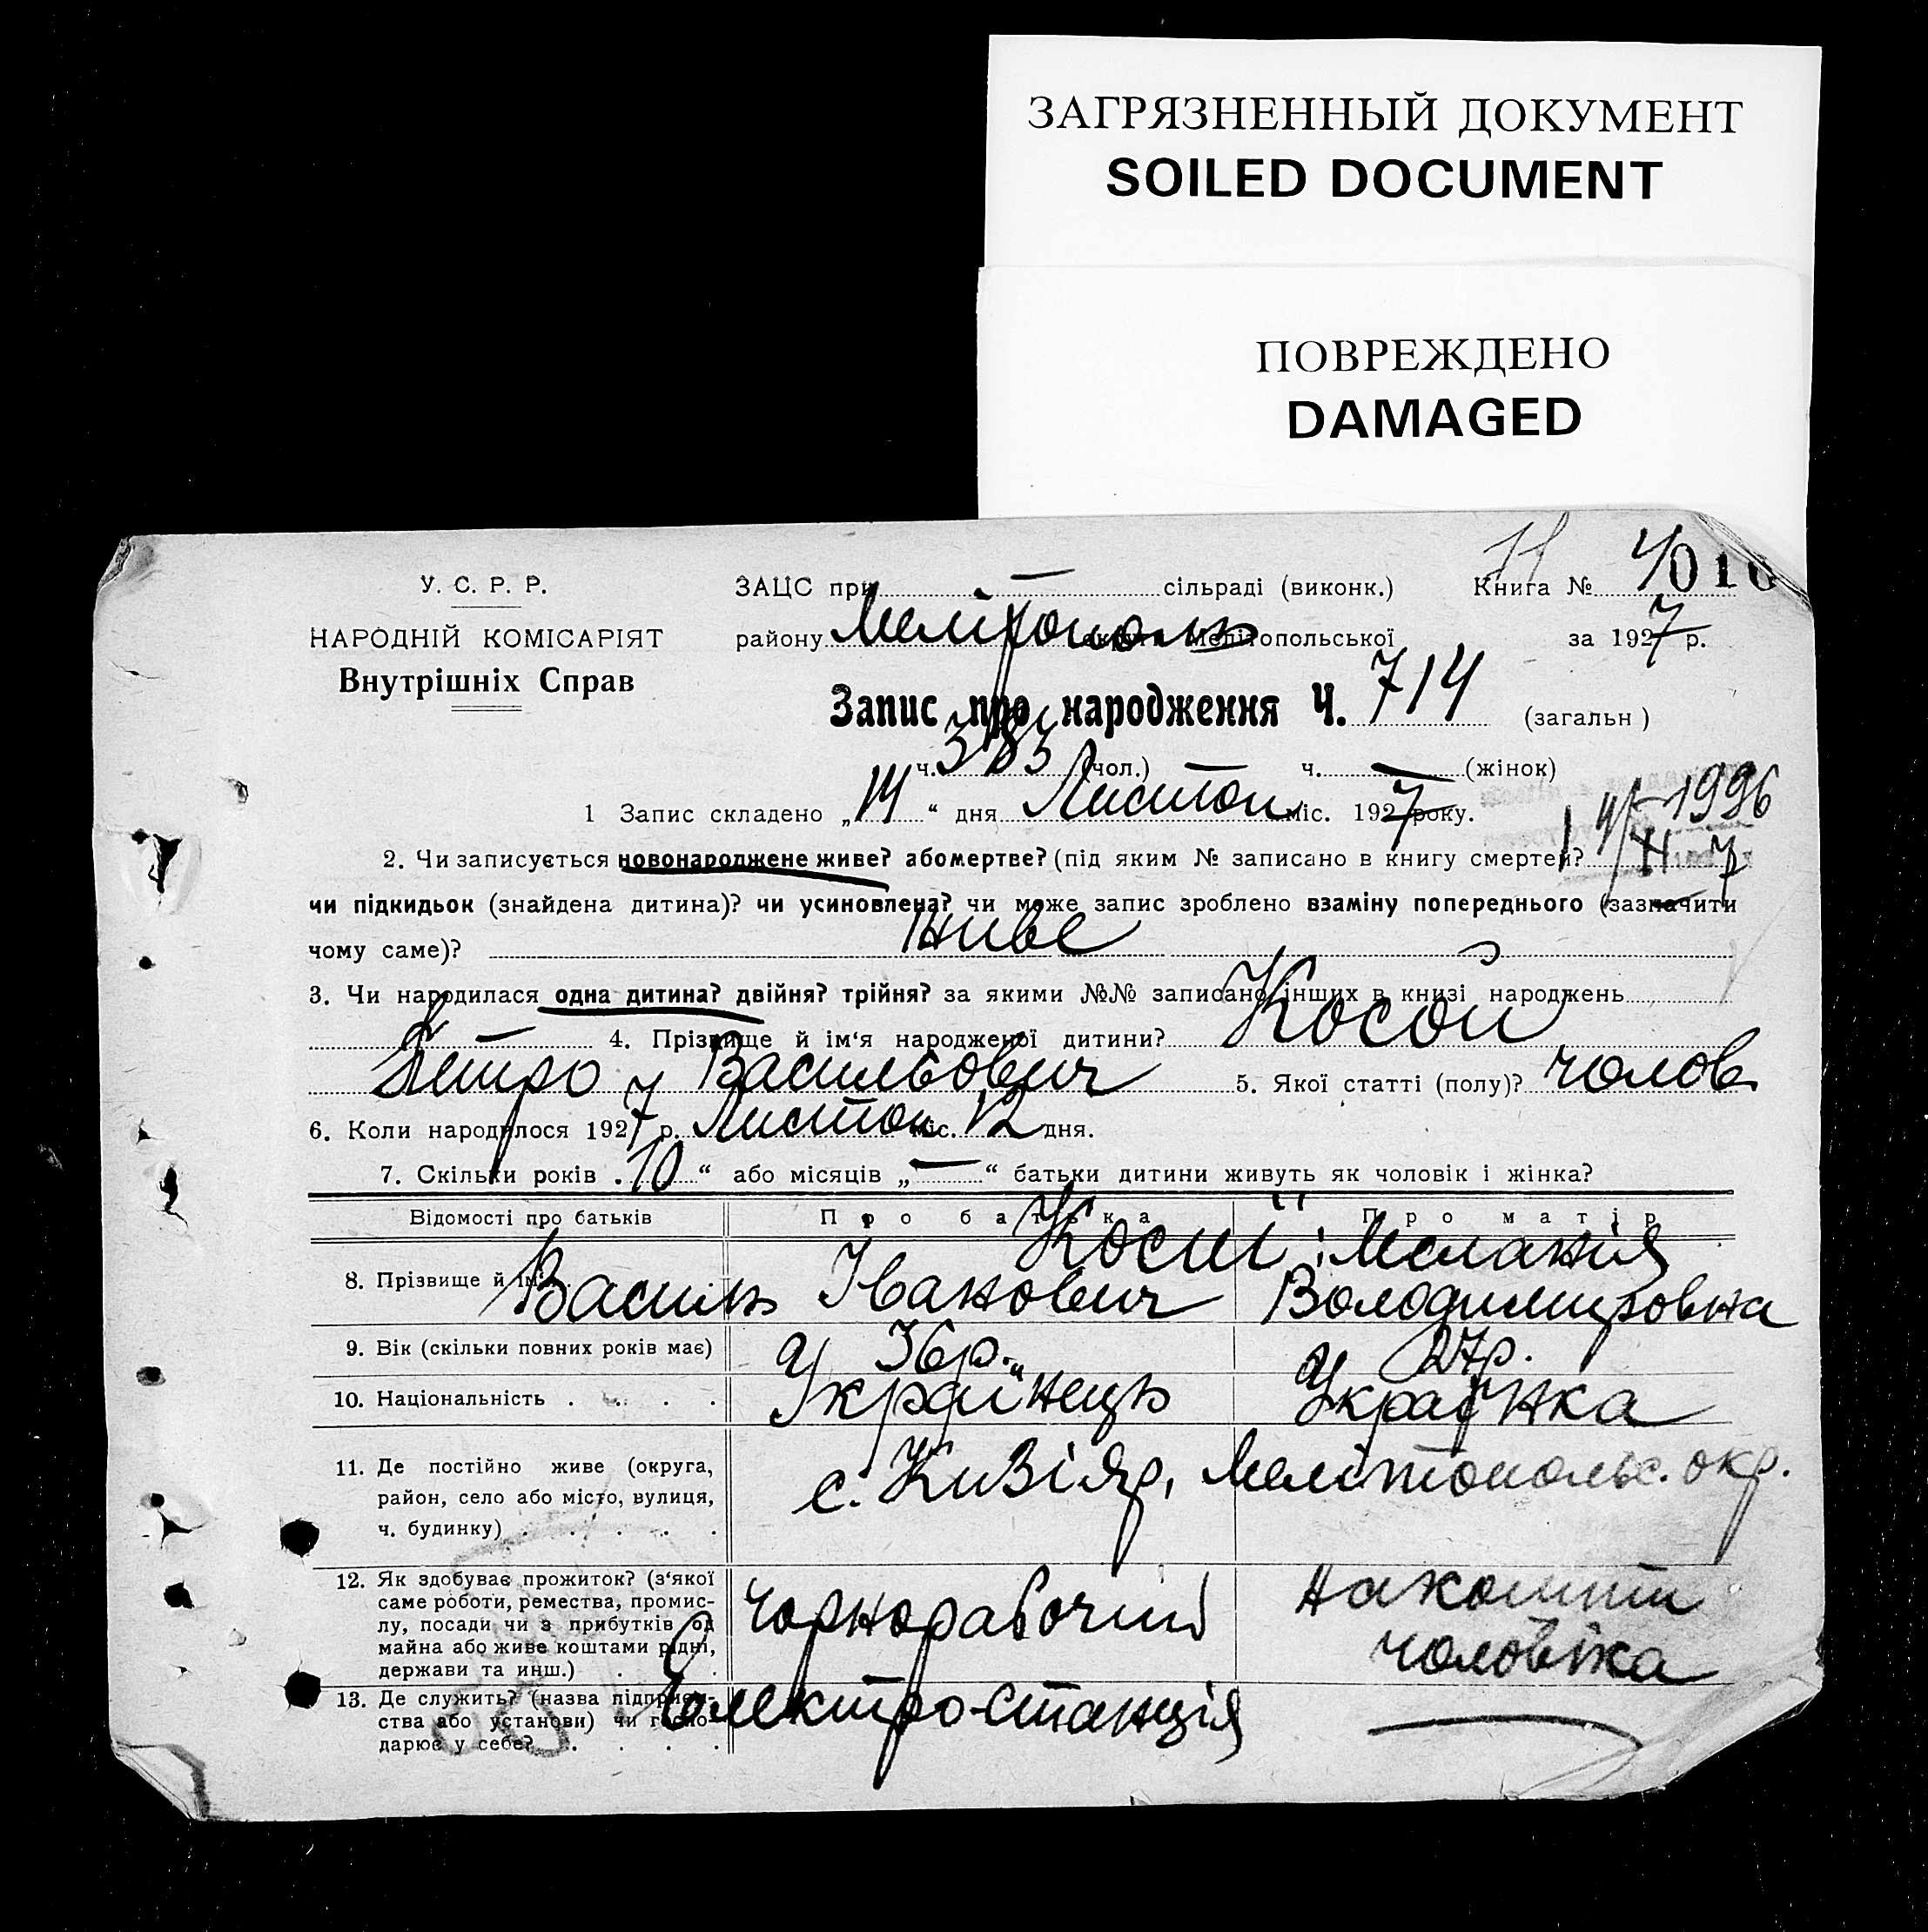 ЗАГРЯЗНЕННЫЙ ДОКУМЕНТ
SOILED DOCUMENT
ПОВРЕЖДЕНО
DAMAGED
У. С. Р. Р.
НАРОДНІЙ КОМІСАРІЯТ
Внутрішніх Справ
ЗАЦС при — сільраді (виконк.) Книга №
району Мелітополь округи Мелітопольської за 1927 р.
Запис про народження Ч. 714 (загальн)
ч. 383 (чол.) ч. — (жінок)
1 Запис складено „14“ дня Листоп. міс. 1927 року.
1996
2. Чи записується новонароджене живе? або мертве? (під яким № записано в книгу смертей?
чи підкидьок (знайдена дитина)? чи усиновлена? чи може запис зроблено взаміну попереднього (зазначити
чому саме)? живе
3. Чи народилася одна дитина? двійня? трійня? за якими №№ записано інших в книзі народжень
— 4. Прізвище й ім‘я народженої дитини? Косой
Петро Васильович 5. Якої статті (полу)? чолов.
6. Коли народилося 1927 р. Листоп. міс. 12 дня.
7. Скільки років „10“ або місяців „—“ батьки дитини живуть як чоловік і жінка?
Відомості про батьків Про батька Про матір
8. Прізвище й ім‘я Косиї: Меланія
Василь Іванович Володимировна
9. Вік (скільки повних років має) 36р. 27р.
10. Національність . . . . Українець Українка
11. Де постійно живе (округа,
район, село або місто, вулиця,
ч. будинку) . . . . . с. Кизіяр, Мелітопольс. окр.
12. Як здобуває прожиток? (з‘якої
саме роботи, ремества, промис-
лу, посади чи з прибутків од
майна або живе коштами рідні,
держави та инш.) . . чорнорабочий на кошти
чоловіка
13. Де служить? (назва підприєм-
ства або установи) чи госпо-
дарює у себе? . . . . Електро-станція —